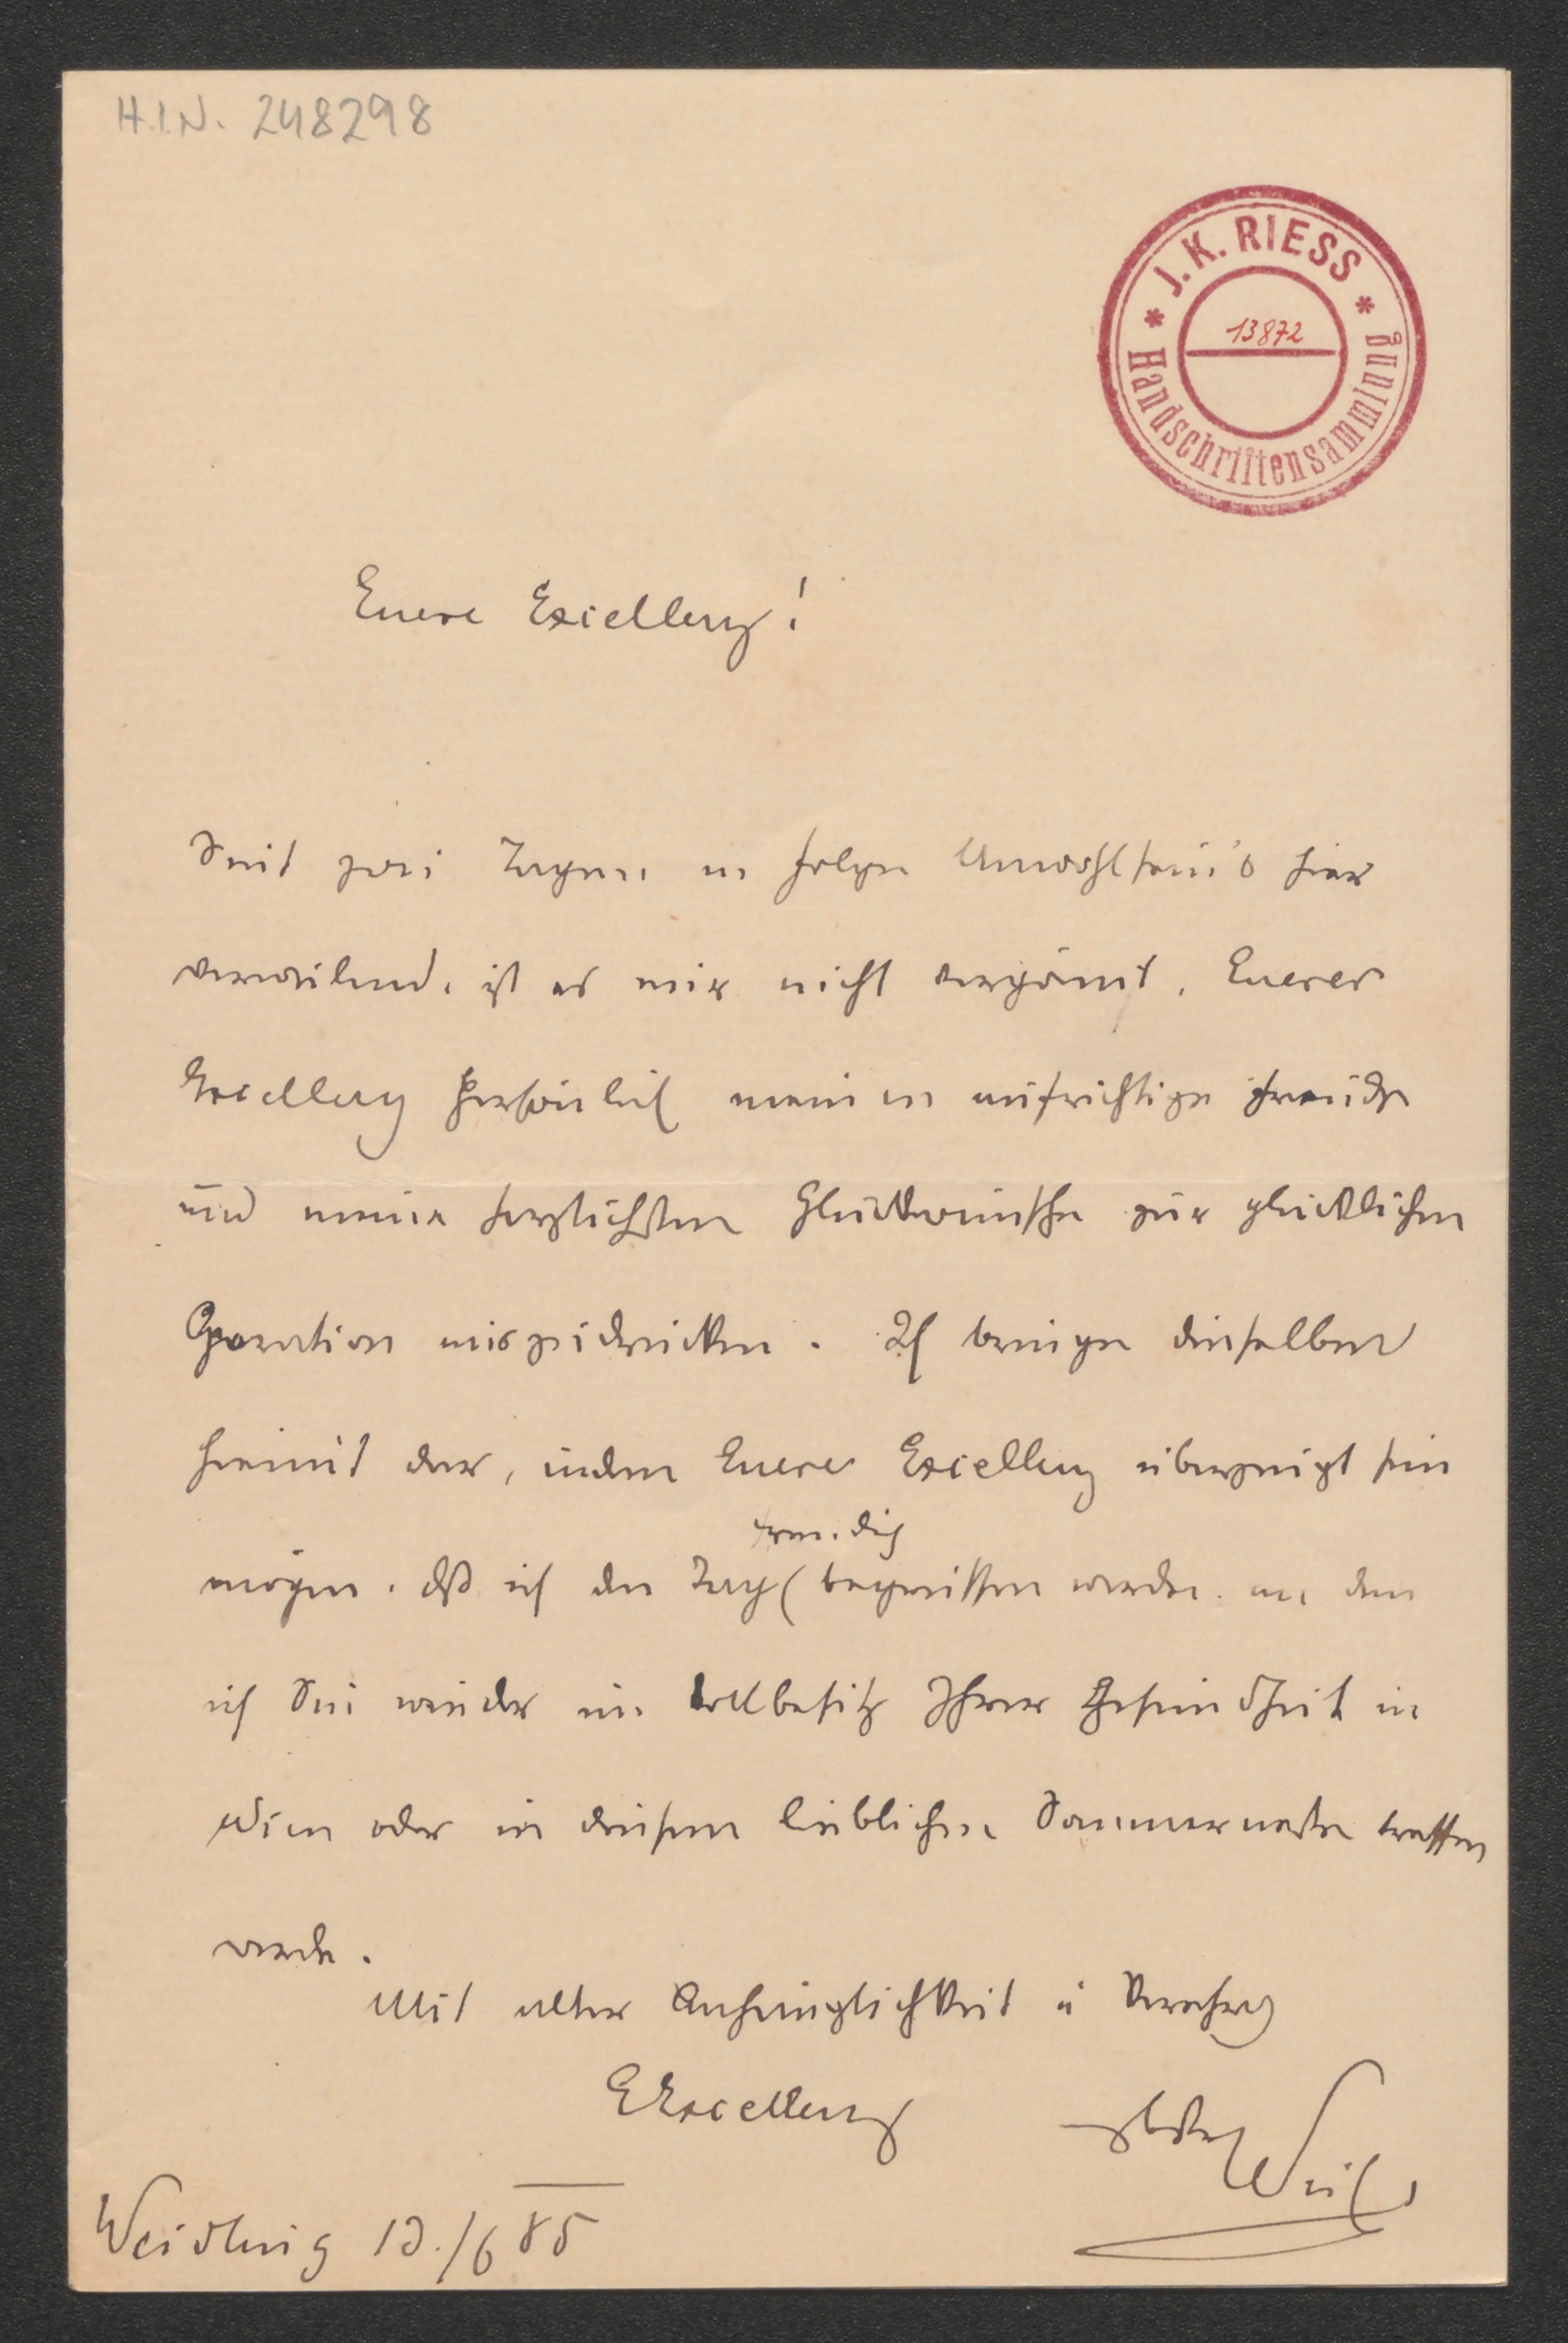 H.I.N. 248298
* J. K. RIESS *
Handschriftensammlung
13872
Euere Excellenz!
Seit zwei Tagen in Folge Unwohlseins hier
verweilend, ist es mir nicht vergönnt, Euerer
Excellenz persönlich meinen aufrichtige Freude
und meine herzlichsten Glückwünsche zur glücklichen
Operation auszudrücken. Ich bringe dieselben
hiemit dar, indem Euere Excellenz überzeugt sein
mögen, daß ich den Tag freudig begrüssen werde, an dem
ich Sie wieder im Vollbesitz Ihrer Gesundheit in
Wien oder in diesem lieblichen Sommerneste treffen
werde.
Mit alter Anhänglichkeit u Verehrung
E Excellenz
Weidling 1